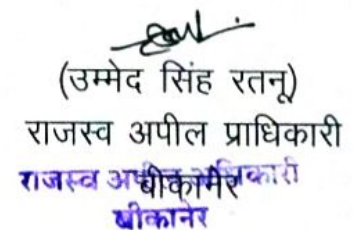 (उम्मेद सिंह रतनू)
राजस्व अपील प्राधिकारी
बीकानेर
राजस्व अपील
बीकानेर